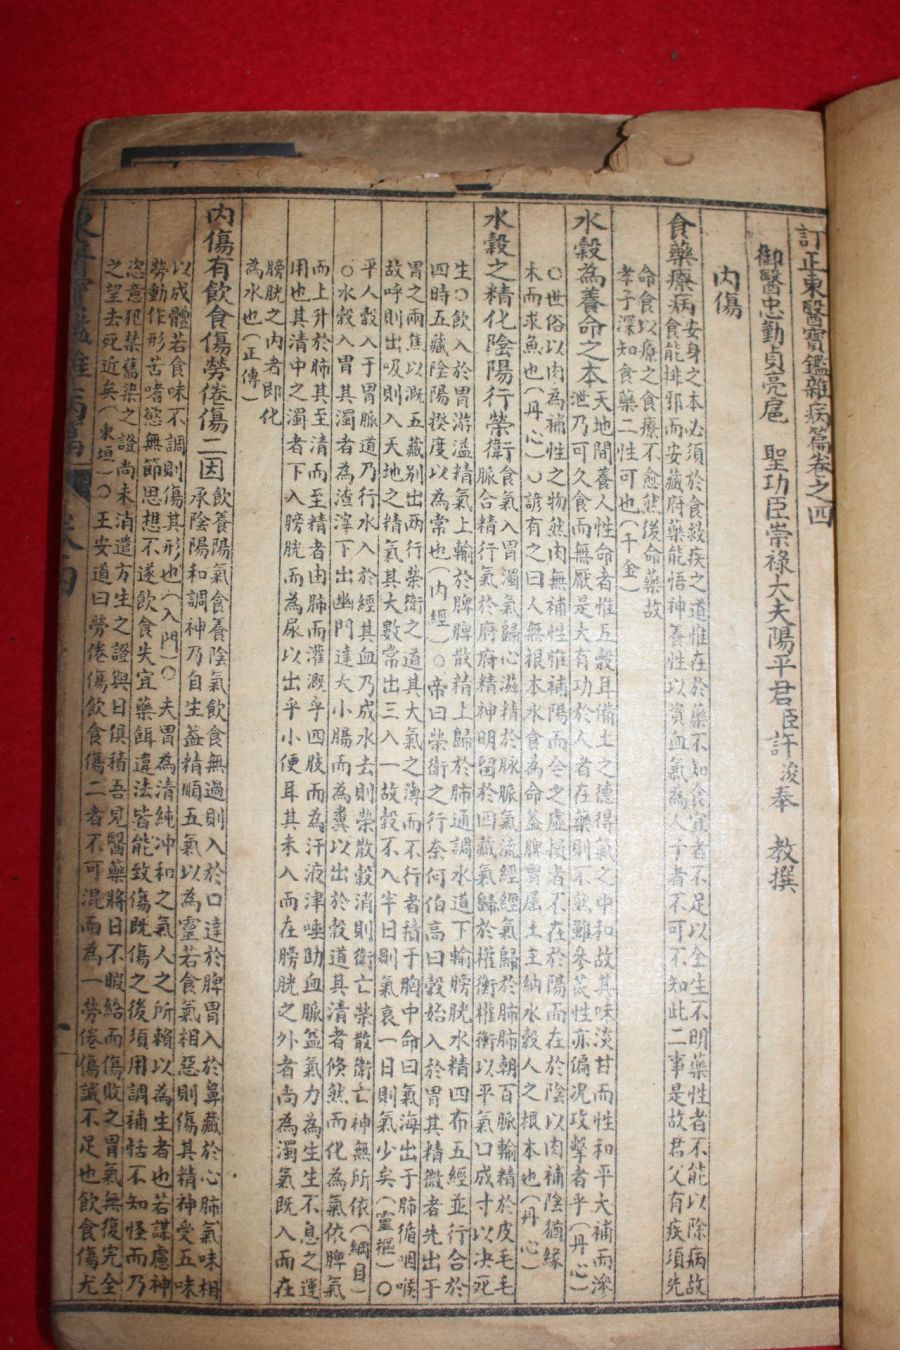 訂正東醫寶鑑雜病篇卷之四
御醫忠勤貞亮扈 聖功臣崇祿大夫陽平君臣許 浚奉 教撰
內傷
食藥療病
安身之本必須於食救疾之道惟在於藥不知食宜者不足以全生不明藥性者不能以除病故
食能排邪而安藏府藥能悟神養性以資血氣為人子者不可不知此二事是故君父有疾須先
命食以療之食療不愈然後命藥故
孝子深知食藥二性可也(千金)
水穀為養命之本
天地間養人性命者惟五穀耳備土之德得氣之中和故其味淡甘而性和平大補而滲
泄乃可久食而無厭是大有功於人者在藥則不然雖參芪性亦偏況攻擊者乎(丹心)
○世俗以肉為補性之物然肉無補性惟補陽而今之虛損者不在於陽而在於陰以肉補陰猶緣
木而求魚也(丹心)○諺有之曰人無根本水食為命蓋脾胃屬土主納水穀人之根本也(丹心)
水穀之精化陰陽行榮衛
食氣入胃濁氣歸心滋精於脉脉氣流經經氣歸於肺肺朝百脈輸精於皮毛毛
脈合精行氣於府府精神明留於四藏氣歸於權衡權衡以平氣口成寸以决死
生○飲入於胃游溢精氣上輸於脾脾散精上歸於肺通調水道下輸膀胱水精四布五經並行合於
四時五藏陰陽揆度以為常也(內經)○帝曰榮衛之行奈何伯高曰穀始入於胃其精微者先出于
胃之兩焦以漑五藏別出兩行榮衛之道其大氣之溥而不行者積于胸中命曰氣海出于肺循咽喉
故呼則出吸則入天地之精氣其大數常出三入一故穀不入半日則氣衰一日則氣少矣(靈樞)○
平人穀入于胃脈道乃行水入於經其血乃成水去則榮散穀消則衛亡榮散衛亡神無所依(綱目)
○水穀入胃其濁者為渣滓下出幽門達大小腸而為糞以出於穀道其清者倏然而化為氣依脾氣
而上升於肺其至清而至精者由肺而灌漑乎四肢而為汗液津唾助血脈益氣力為生生不息之運
用也其清中之濁者下入膀胱而為尿以出乎小便耳其未入而在膀胱之外者尚為濁氣既入而在
膀胱之內者即化
為水也(正傳)
內傷有飲食傷勞倦傷二因
飲養陽氣食養陰氣飲食無過則入於口達於脾胃入於鼻藏於心肺氣味相
承陰陽和調神乃自生蓋精順五氣以為靈若食氣相惡則傷其精神受五味
以成體若食味不調則傷其形也(入門)○夫胃為清純冲和之氣人之所賴以為生者也若謀慮神
勞動作形苦嗜慾無節思想不遂飲食失宜藥餌違法皆能致傷既傷之後須用調補恬不知怪而乃
恣意犯禁舊染之證尚未消遣方生之證與日俱積吾見醫藥將日不暇給而傷敗之胃氣無復完全
之望去死近矣(東垣)○王安道曰勞倦傷飲食傷二者不可混而為一勞倦傷誠不足也飲食傷尤